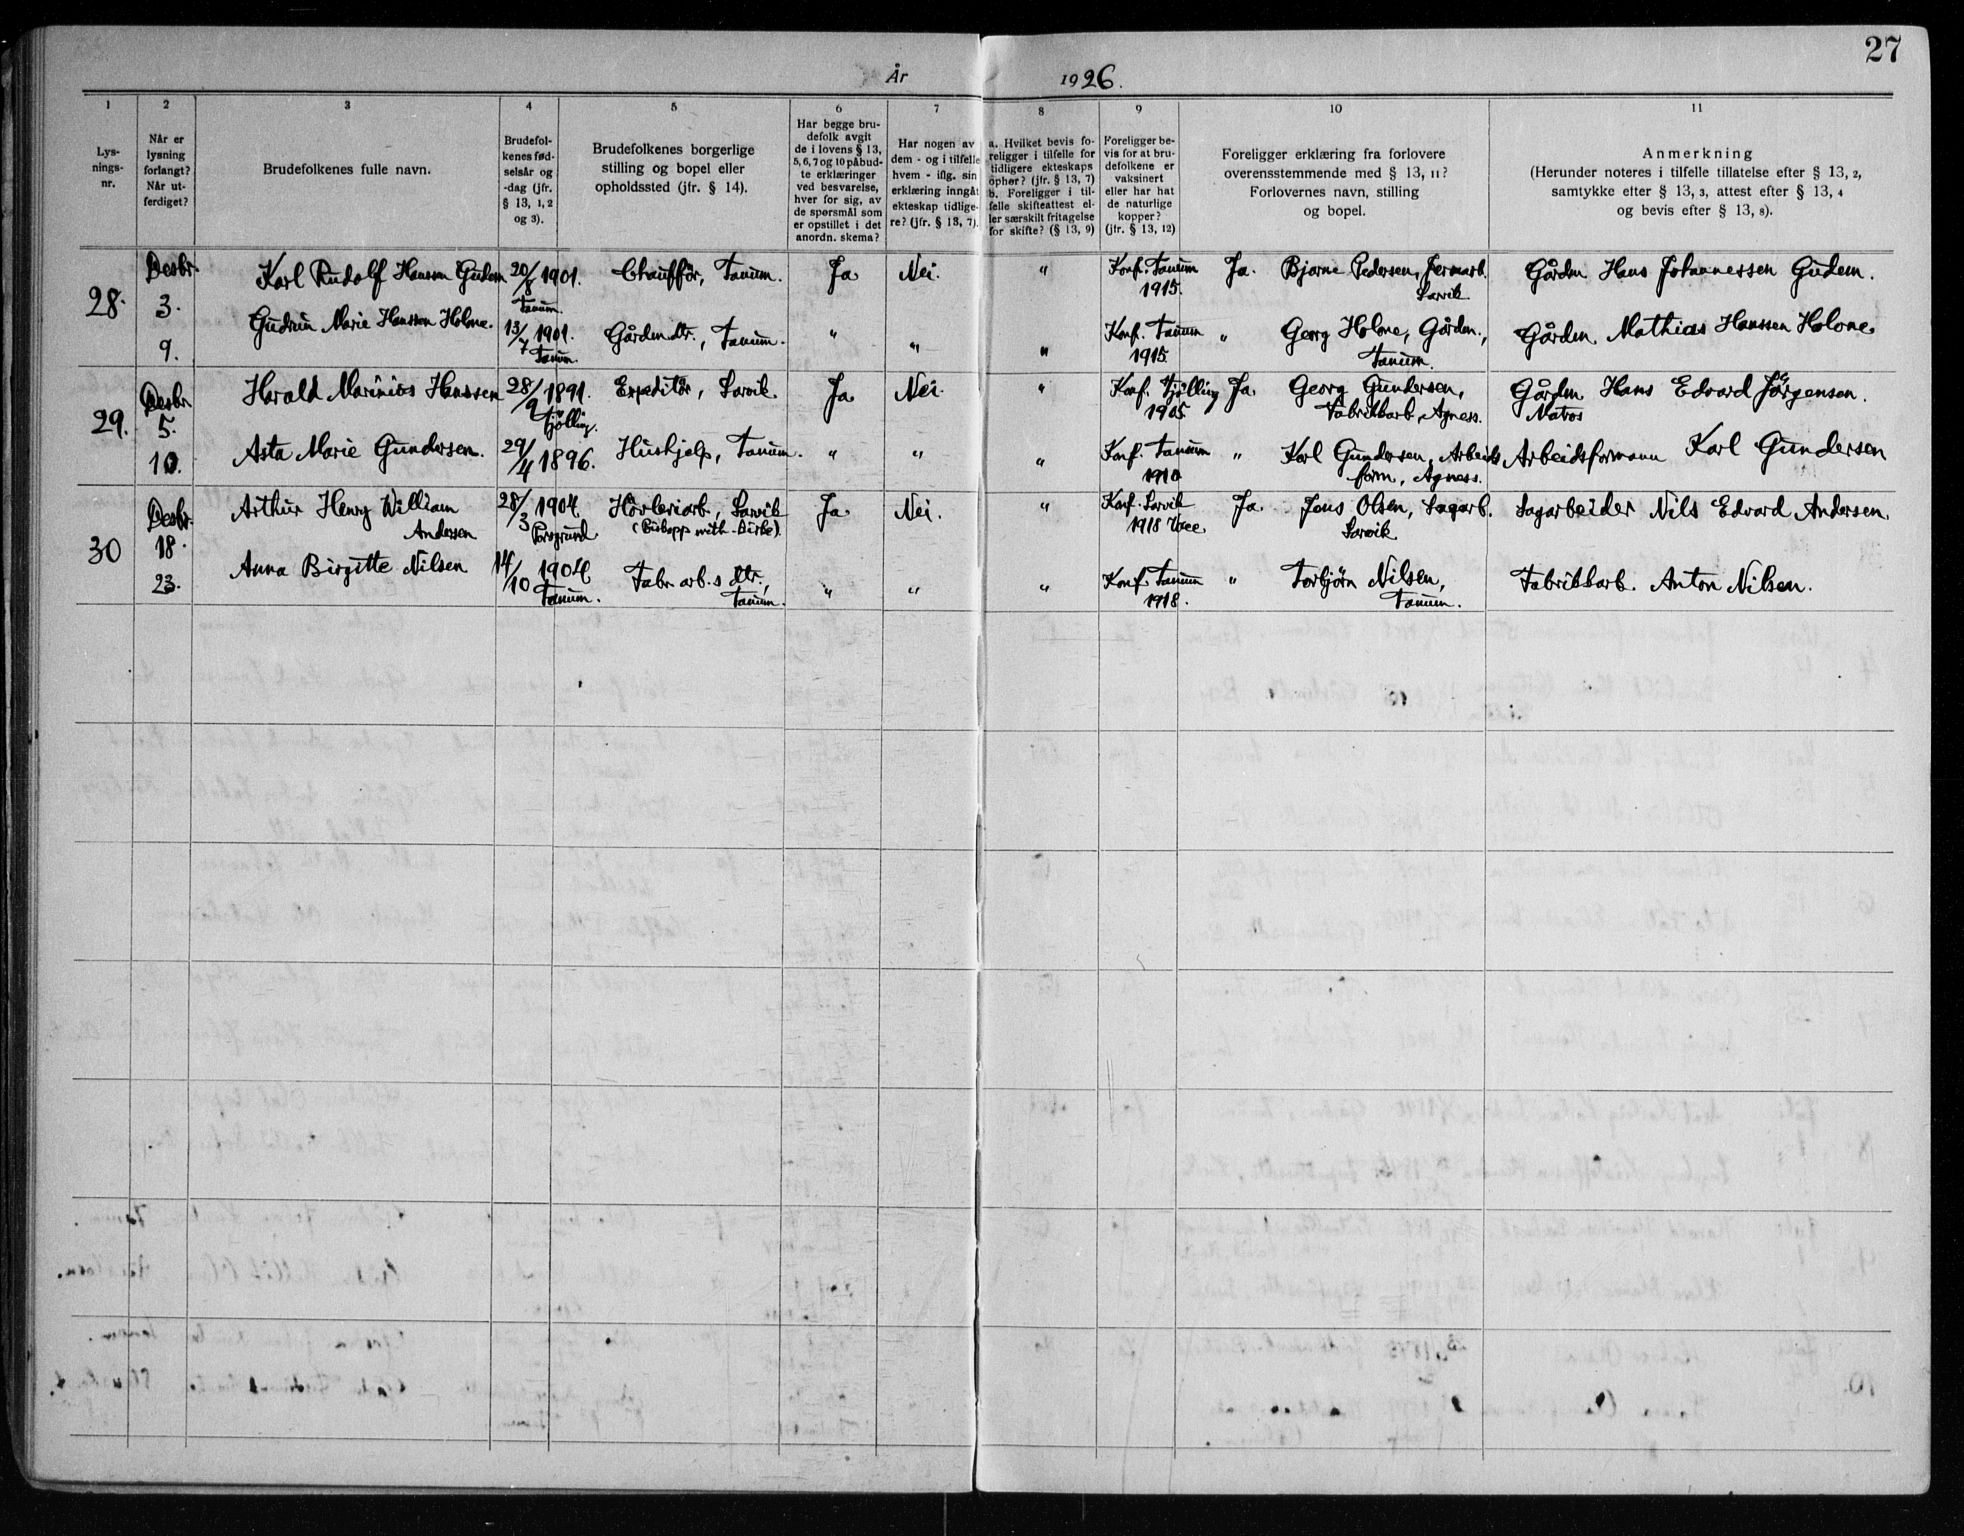 27
År 1926.
1 2 3 4 5 6 7 8 9 10 11
Lys-
nings-
nr.
Når er
lysning
forlangt?
Når ut-
ferdiget?
Brudefolkenes fulle navn.
Brudefol-
kenes fød-
selsår og
-dag (jfr.
§ 13, 1, 2
og 3).
Brudefolkenes borgerlige
stilling og bopel eller
opholdssted (jfr. § 14).
Har begge bru-
defolk avgit
de i lovens § 13,
5, 6, 7 og 10 påbud-
te erklæringer
ved besvarelse,
hver for sig, av
de spørsmål som
er opstillet i det
anordn. skema?
Har nogen av
dem - og i tilfelle
hvem - iflg. sin
erklæring inngåt
ekteskap tidlige-
re? (jfr. § 13, 7).
a. Hvilket bevis fo-
religger i tilfelle for
tidligere ekteskaps
ophør? (jfr. § 13, 7)
b. Foreligger i til-
felle skifteattest el-
ler særskilt fritagelse
for skifte? (§ 13, 9)
Foreligger be-
vis for at bru-
defolkene er
vaksinert
eller har hat
de naturlige
kopper?
(jfr. § 13, 12)
Foreligger erklæring fra forlovere
overensstemmende med § 13, 11?
Forlovernes navn, stilling
og bopel.
Anmerkning
(Herunder noteres i tilfelle tillatelse efter § 13, 2,
samtykke efter § 13, 3, attest efter § 13, 4
og bevis efter § 13, 8).
28.
Desbr.
3.
9.
Karl Rudolf Hansen Gudem
20/8 1901.
Tanum.
Chaufför, Tanum.
Ja
Nei.
"
Konf. Tanum
1915.
Ja.
Bjarne Pedersen, Jernarb.
Larvik
Gårdm. Hans Johannessen Gudem.
Gudrun Marie Hanssen Holone.
13/7 1901.
Tanum.
Gårdm.dtr., Tanum.
"
"
"
Konf. Tanum
1915
"
Georg Holone, Gårdm.,
Tanum.
Gårdm. Mathias Hanssen Holone.
29.
Desbr
5.
10.
Harald Marinius Hanssen
28/9 1891.
Tjölling.
Expeditör, Larvik.
Ja
Nei.
"
Konf. Tjölling
1905
Ja.
Georg Gundersen,
Fabrikkarb., Agness.
Gårdm. Hans Edvard Jörgensen.
Matros
Asta Marie Gundersen.
29/4 1896.
Hushjelp, Tanum.
"
"
"
Konf. Tanum
1910
"
Karl Gundersen, Arbeids
form., Agness.
Arbeidsformann Karl Gundersen
30
Desbr.
18.
23.
Arthur Henry William
Andersen
28/3 1904
Porsgrund.
Hövleriarb., Larvik
Ja
Nei.
"
Konf. Larvik
1918
Ja.
Jens Olsen, Sagarb.
Larvik
Sagarbeider Nils Edvard Andersen.
Anna Birgitte Nilsen
14/10 1904
Tanum.
Fabr.arb.s dtr.,
Tanum.
"
"
"
Konf. Tanum
1918.
"
Torbjörn Nilsen,
Tanum.
Fabrikkarb. Anton Nilsen.